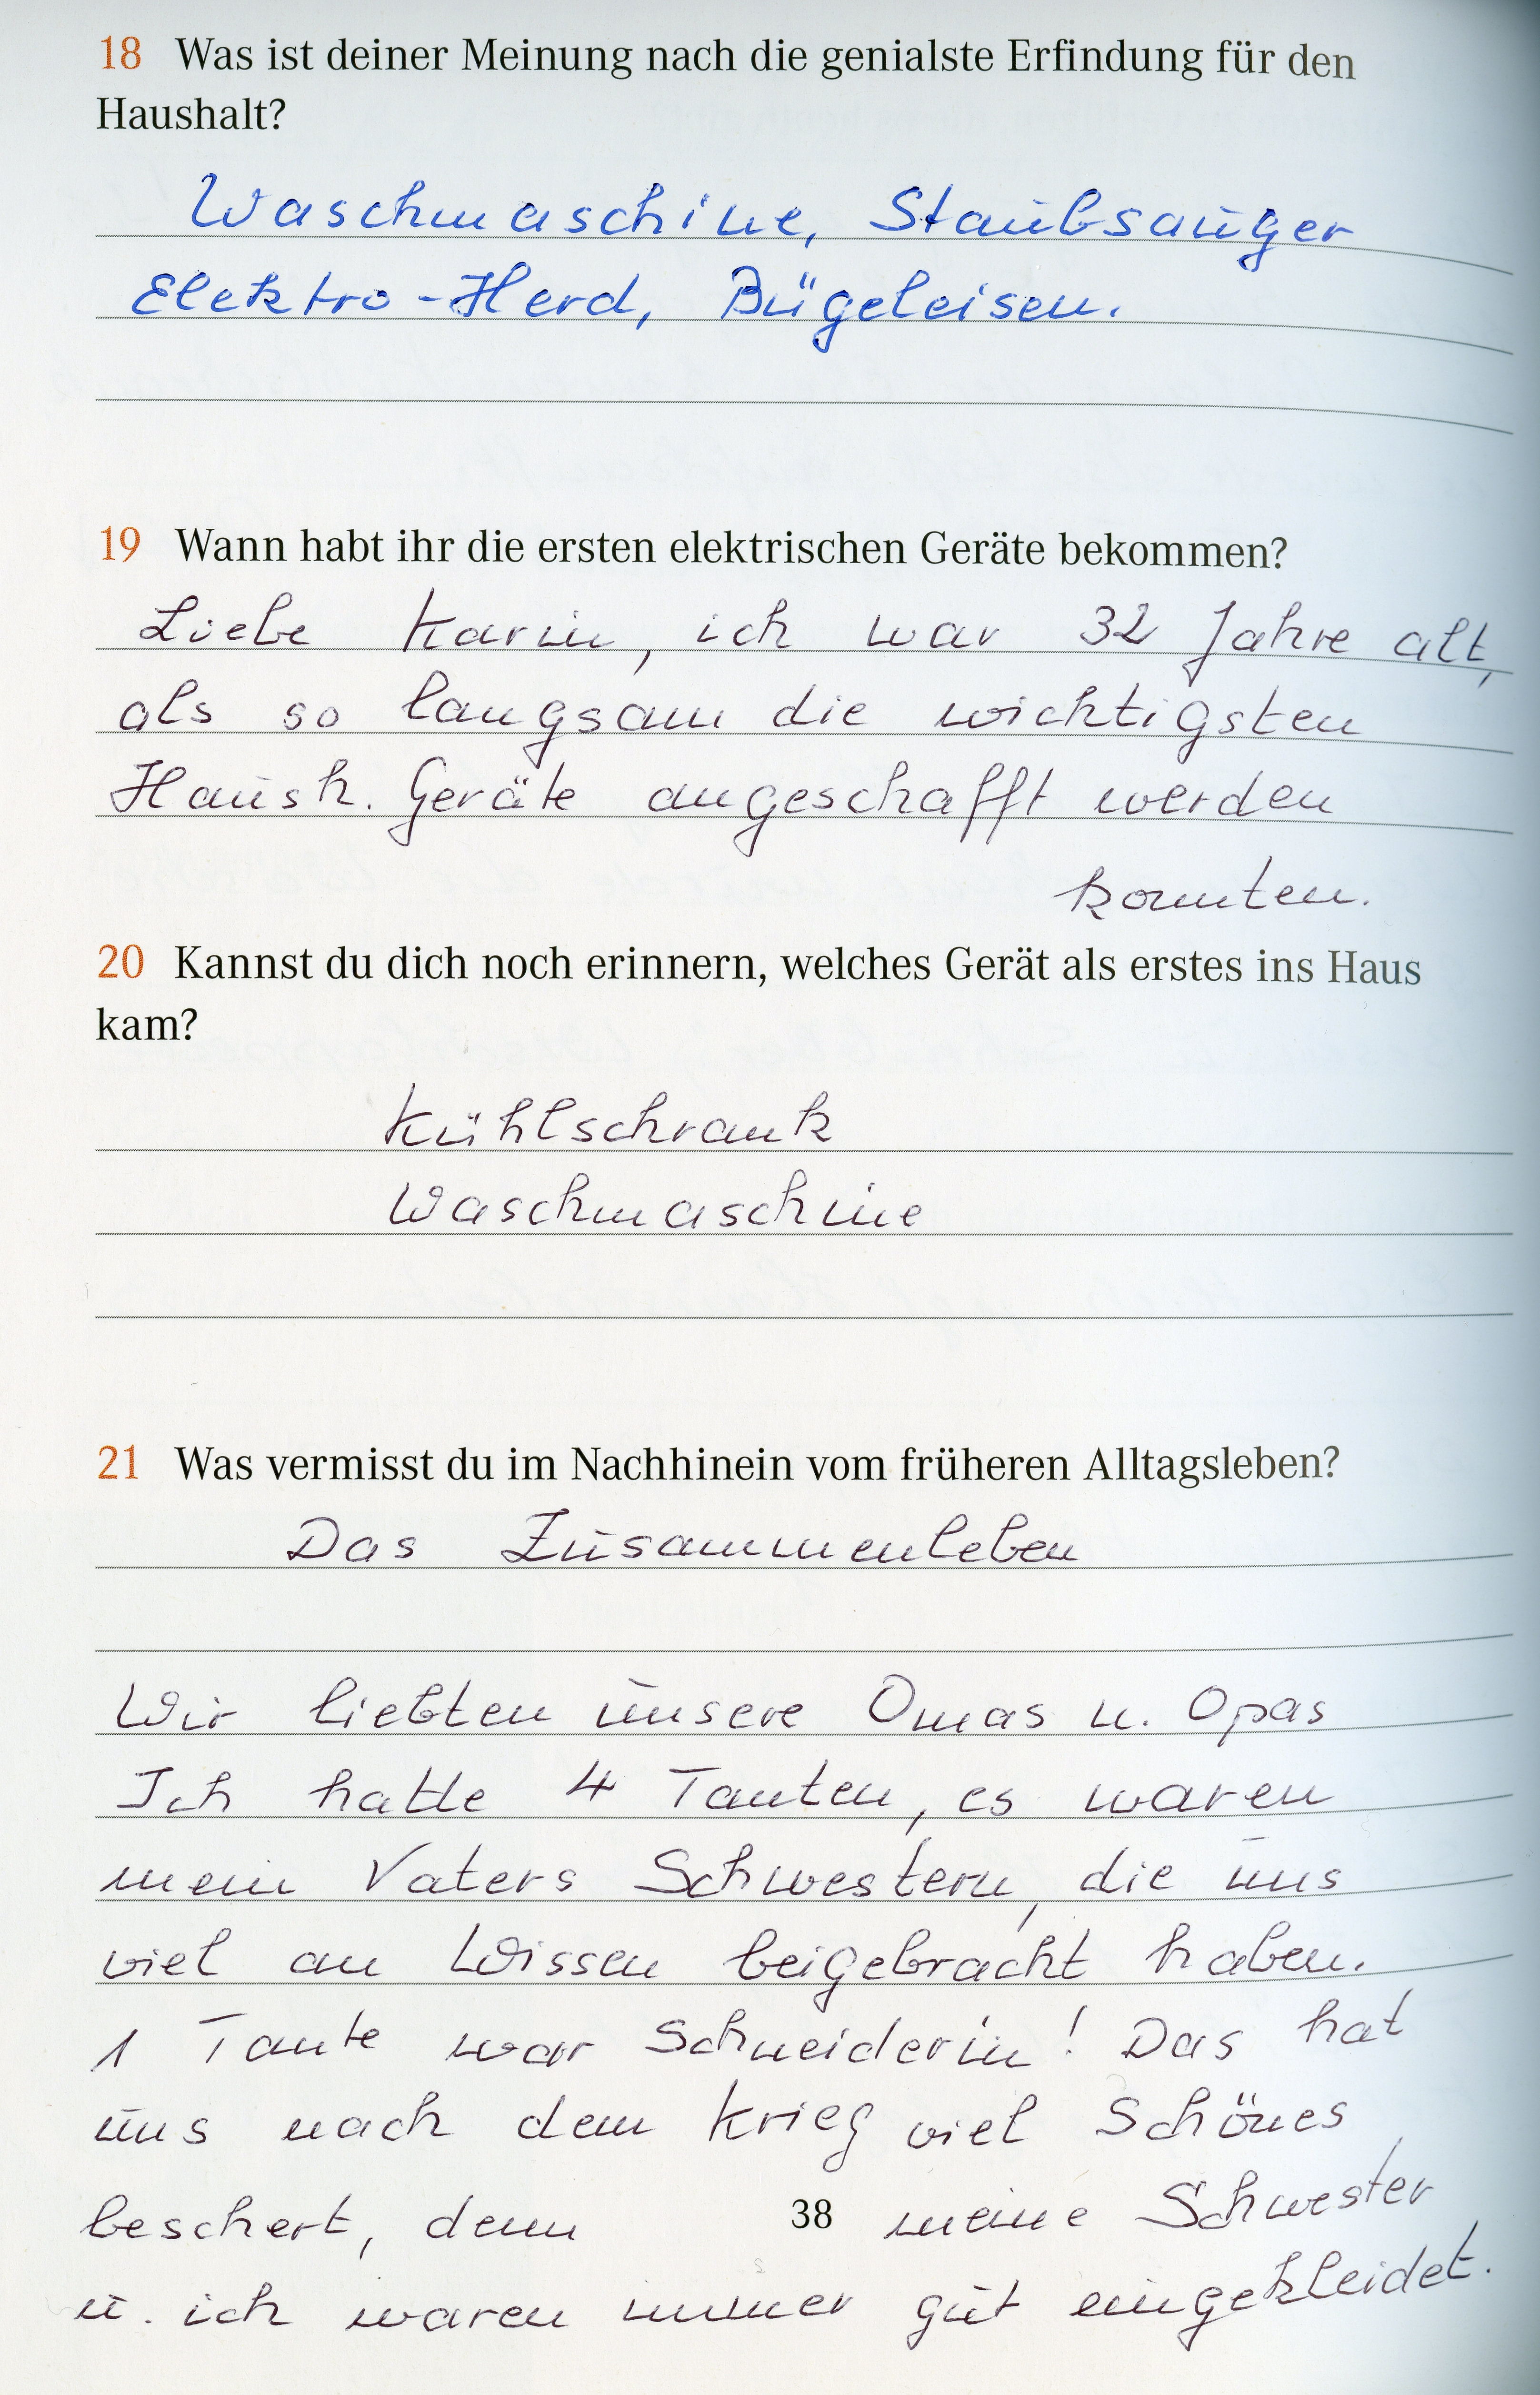 18 Was ist deiner Meinung nach die genialste Erfindung für den
Haushalt?
Waschmaschine, Staubsauger
Elektro-Herd, Bügeleisen.
19 Wann habt ihr die ersten elektrischen Geräte bekommen?
Liebe Karin, ich war 32 Jahre alt,
als so langsam die wichtigsten
Haush. Geräte angeschafft werden
konnten.
20 Kannst du dich noch erinnern, welches Gerät als erstes ins Haus
kam?
Kühlschrank
Waschmaschine
21 Was vermisst du im Nachhinein vom früheren Alltagsleben?
Das Zusammenleben
Wir liebten unsere Omas u. Opas
Ich hatte 4 Tanten, es waren
mein Vaters Schwestern, die uns
viel an Wissen beigebracht haben.
1 Tante war Schneiderin! Das hat
uns nach dem Krieg viel Schönes
beschert, denn meine Schwester
u. ich waren immer gut eingekleidet.
38